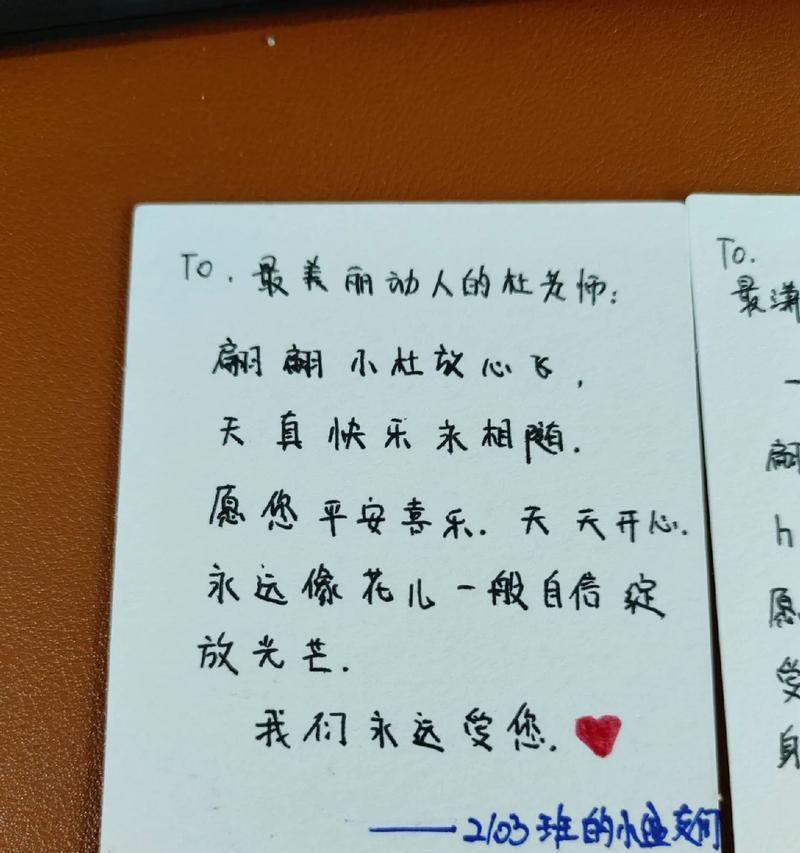 To. 最美丽动人的杜老师:
翩翩小杜放心飞,
天真快乐永相随.
愿您平安喜乐. 天天开心.
永远像花儿一般自信绽
放光芒.
我们永远爱您.
——2103班的小盆友们
To.
最潇
一
翩
h
愿